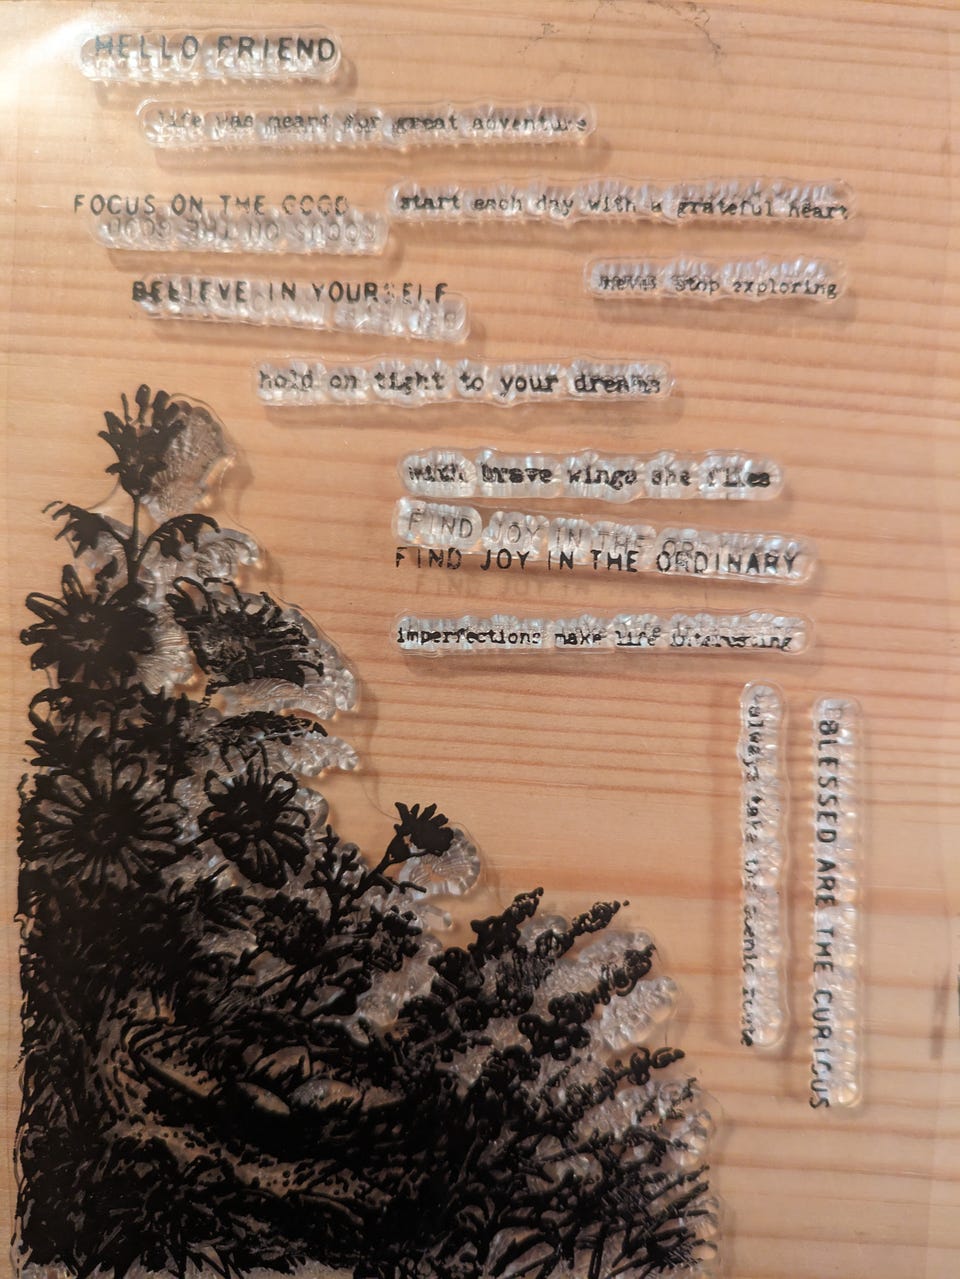 HELLO FRIEND
life was meant for great adventure
FOCUS ON THE GOOD
start each day with a grateful heart
BELIEVE IN YOURSELF
never stop exploring
hold on tight to your dreams
with brave wings she flies
FIND JOY IN THE ORDINARY
imperfections make life interesting
always take the scenic route
BLESSED ARE THE CURIOUS